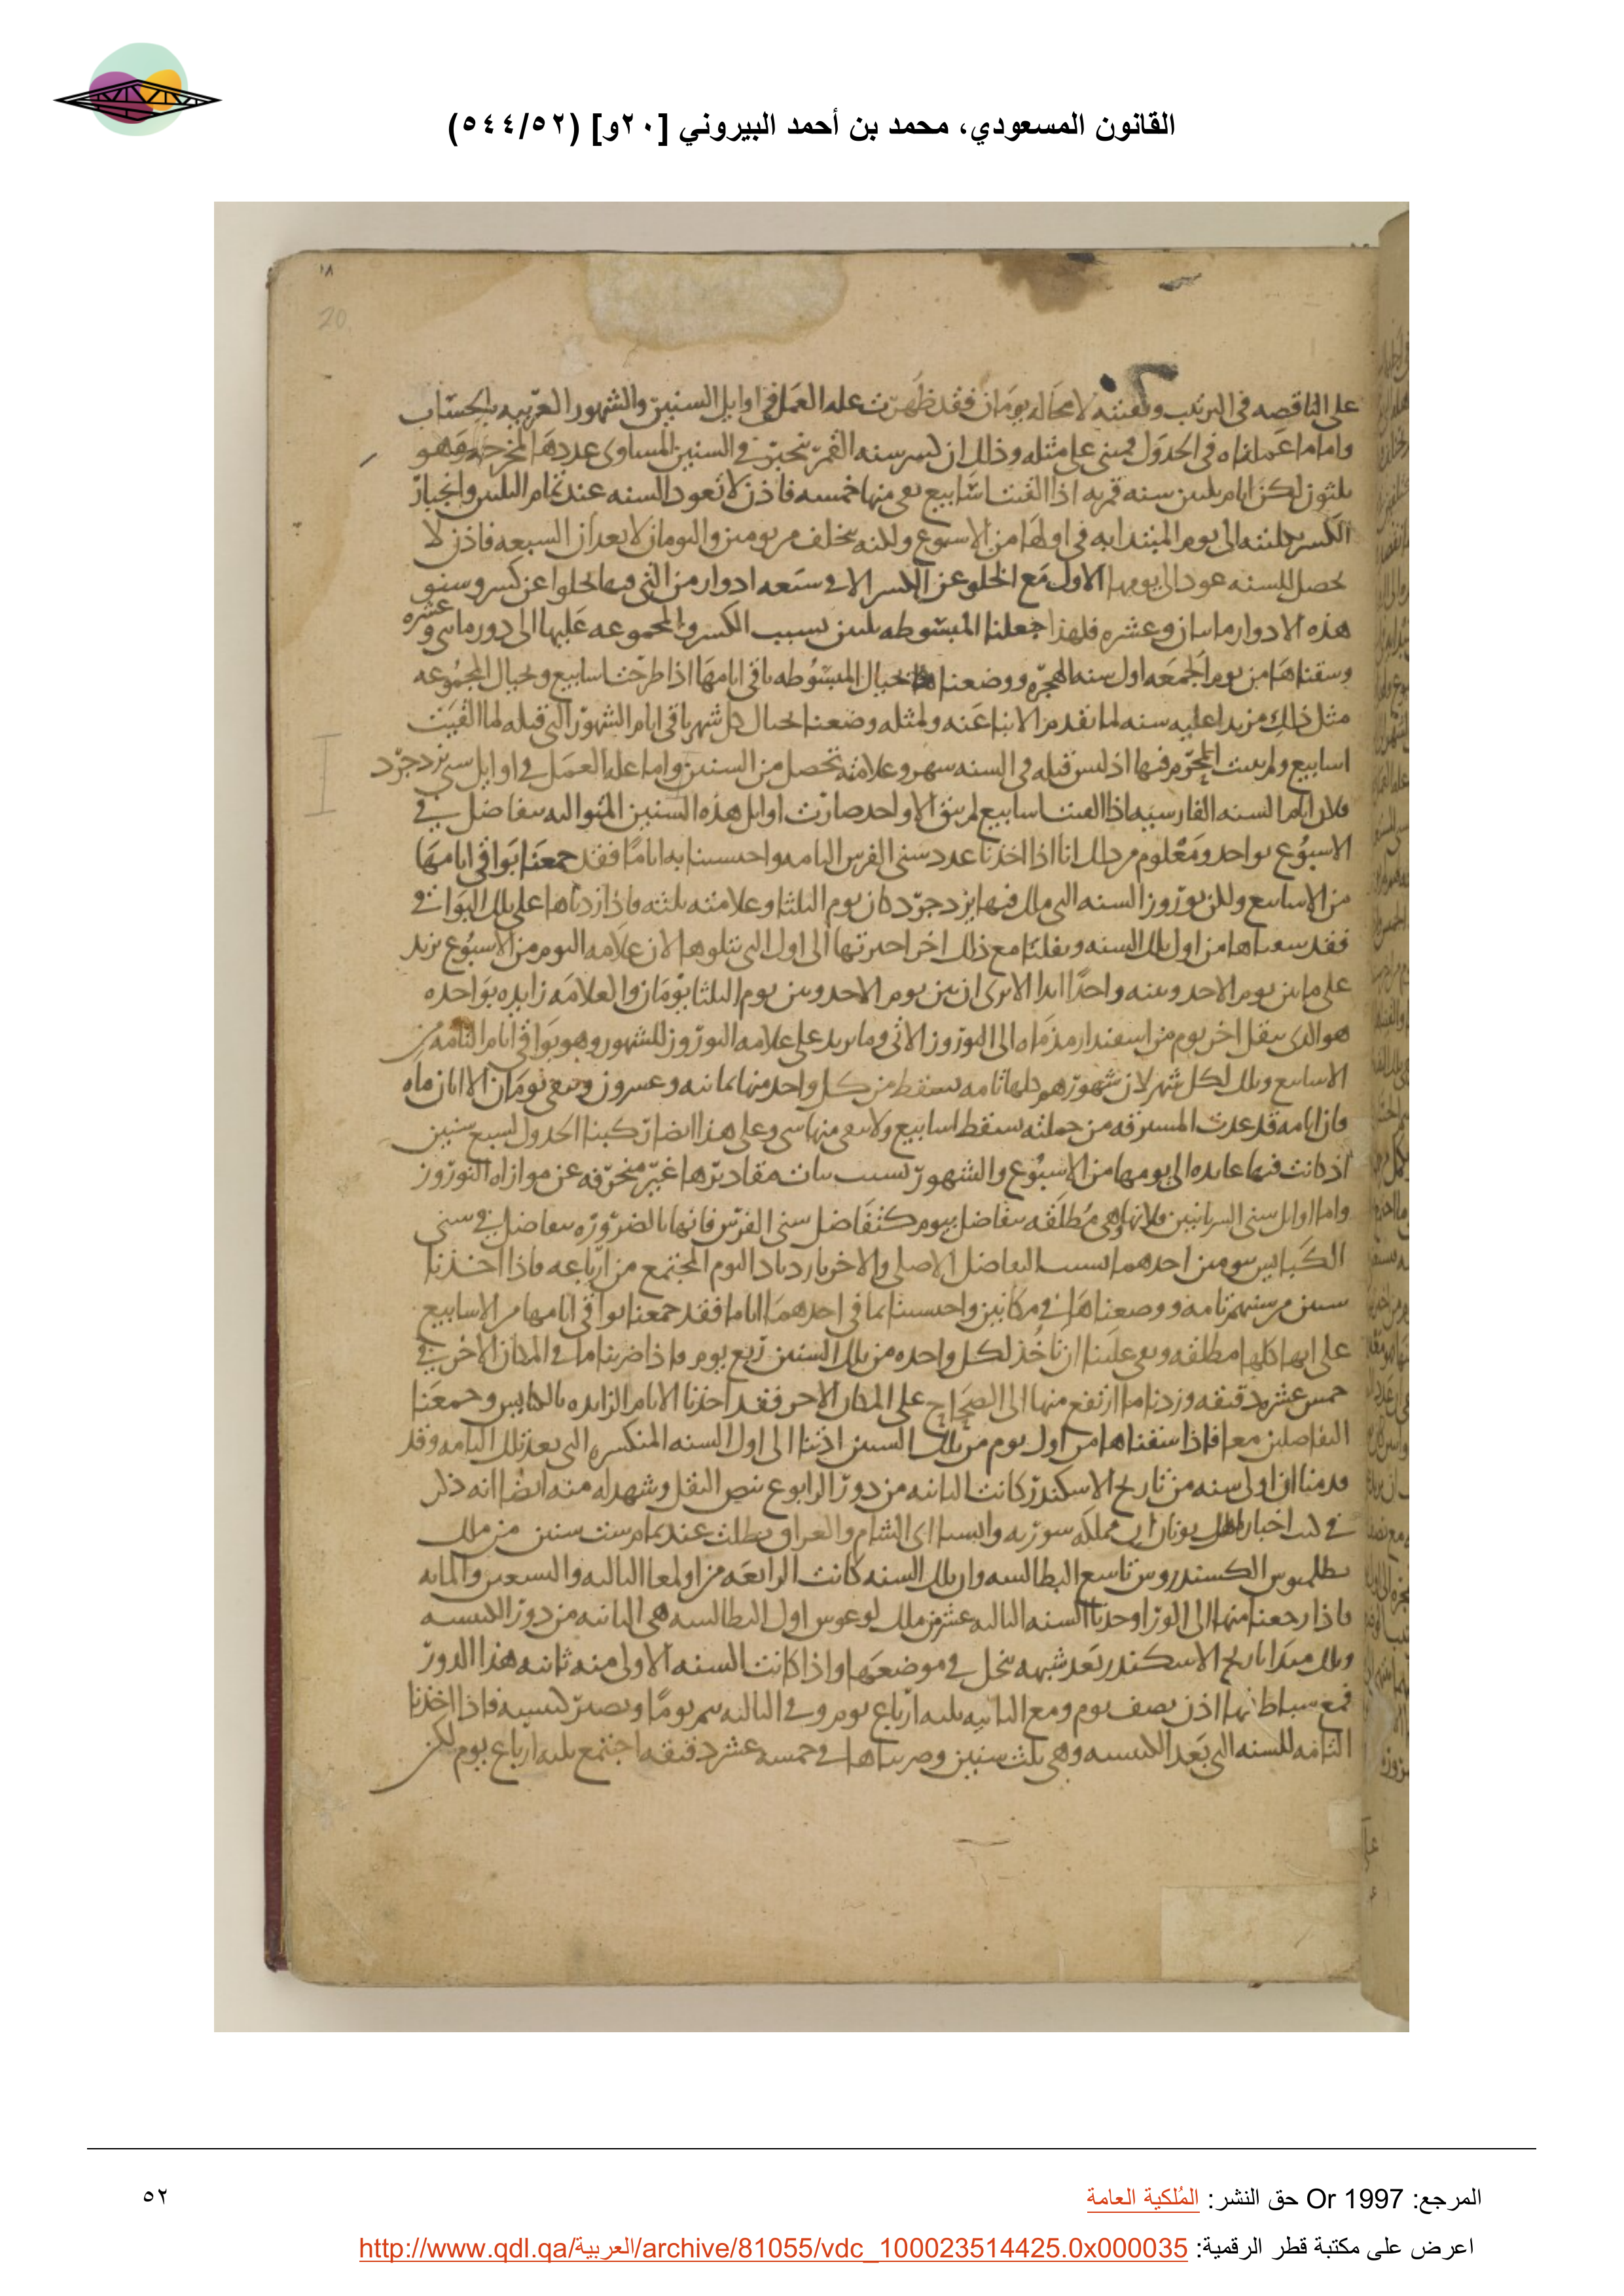 القانون المسعودي، محمد بن أحمد البيروني [٢٠و] (٥٤٤/٥٢)
١٨
20
على الناقصه فى الترتيب وبقيته لا محاله يومان فقد ظهرت عله العمل فى اوايل السنين والشهور العربيه بالحساب
واما ما عملناه فى الجدول فمبنى على مثله وذلك ان كسر سنه القمر ينجبر فى السنين المساوى عددها لمخرجه وهو
ثلثون لكن ايام ثلثين سنه قمريه اذا القيت اسابيع بقى منها خمسه فاذن لا تعود السنه عند تمام الثلثين وانجبار
الكسر بكليته الى يوم المبتدا به فى اولها من الاسبوع ولكنه يتخلف عن يومين واليومان لا يعدان السبعه فاذن لا
تحصل للسنه عود الى يومها الاول مع الخلو عن الكسر الا فى سبعه ادوار من التى فيها تخلوا عن كسر وسنو
هذه الادوار مايتان وعشره فلهذا جعلنا المبسوطه ثلثين بسبب الكسر والمجموعه عليها الى دور مايتى وعشره
وسقناها من يوم الجمعه اول سنه الهجره ووضعنا بحيال المبسوطه باقى ايامها اذا طرحت اسابيع وبحيال المجموعه
مثل ذلك مزيدا عليه سنه لما تقدم الانباء عنه ولمثله وضعنا بحيال كل شهر باقى ايام الشهور التى قبله لما القيت
اسابيع ولم يثبت للمحرم فيها اذ ليس قبله فى السنه شهر وعلامته تحصل من السنين واما عله العمل فى اوايل سنى يزدجرد
فلان ايام السنه الفارسيه اذا القيت اسابيع لم يبق الا واحد صارت اوايل هذه السنين المتواليه يتفاضل فى
الاسبوع بواحد ومعلوم من ذلك انا اذا اخذنا عدد سنى الفرس التامه واحتسبنا به اياما فقد جمعنا بواقى ايامها
من الاسابيع ولكن نوروز السنه التى ملك فيها يزدجرد كان يوم الثلثا وعلامته ثلثه فاذا زدناها على تلك البواقى
فقد سقناها من اول تلك السنه ونقلنا مع ذلك اخر اخيرتها الى اول التى تتلوها لان علامه اليوم من الاسبوع يزيد
على ما بين يوم الاحد وبينه واحدا ابدا الا ترى ان بين يوم الاحد وبين يوم الثلثا يومان والعلامه زايده بواحده
هو الذى ينقل اخر يوم من اسفندارمذ ماه الى النوروز الاتى وما يزيد على علامه النوروز للشهور وهو بواقى ايام التامه من
الاسابيع وذلك لكل شهر لان شهورهم كلها تامه يسقط من كل واحد منها ثمانيه وعشرون ويبقى يومان الا ابان ماه
فان ايامه قد عدت المسترقه من جملته يسقط اسابيع ولا يبقى منها شى وعلى هذا ايضا ركبنا الجدول لسبع سنين
اذ كانت فيها عايده الى يومها من الاسبوع والشهور بسبب ثبات مقاديرها غير منحرفه عن موازاه النوروز
واما اوايل سنى السريانيين فلانها وهى مطلقه يتفاضل بيوم كتفاضل سنى الفرس فانها بالضروره يتفاضل فى سنى
الكبايس بيومين احدهما بسبب التفاضل الاصلى والاخر بازدياد اليوم المجتمع من ارباعه فاذا اخذنا
سنين من سنيهم تامه ووضعناها فى مكانين واحتسبنا بما فى احدهما اياما فقد جمعنا بواقى ايامها من الاسابيع
على انها كلها مطلقه وبقى علينا ان ناخذ لكل واحده من تلك السنين ربع يوم فاذا ضربنا ما فى المكان الاخر فى
خمس عشره دقيقه وزدنا ما ارتفع منها الى الصحاح على المكان الاخر فقد اخذنا الايام الزايده بالكبايس وجمعنا
التفاضلين معا فاذا سقناها من اول يوم من تلك السنين ادتنا الى اول السنه المنكسره التى بعد تلك التامه وقد
قدمنا ان اولى سنه من تاريخ الاسكندر كانت الثانيه من دور الرابوع بنص النقل وشهد له منه ايضا انه ذكر
فى كتب اخبار اهل يونان ان مملكه سوريه واسيا اى الشام والعراق بطلت عند تمام ست سنين من ملك
بطلميوس الكسندروس تاسع البطالسه وان تلك السنه كانت الرابعه من اولمعا الثالثه والتسعين والمايه
فاذا رجعنا منها الى الورا وجدنا السنه الثالثه عشر من ملك لوغوس اول البطالسه هى الثانيه من دور الكبيسه
وتلك مبدا تاريخ الاسكندر بعد شبهه تنحل فى موضعها واذا كانت السنه الاولى منه ثانيه هذا الدور
فمع سباطها اذن نصف يوم ومع الثانيه ثلثه ارباع يوم وفى الثالثه يتم يوما ويصير كبيسه فاذا اخذنا
التامه للسنه التى بعد الكبيسه وهى ثلث سنين وضربناها فى خمسه عشر دقيقه اجتمع ثلثه ارباع يوم لكن
المرجع: Or 1997 حق النشر: المُلكية العامة
٥٢
اعرض على مكتبة قطر الرقمية: http://www.qdl.qa/العربية/archive/81055/vdc_100023514425.0x000035